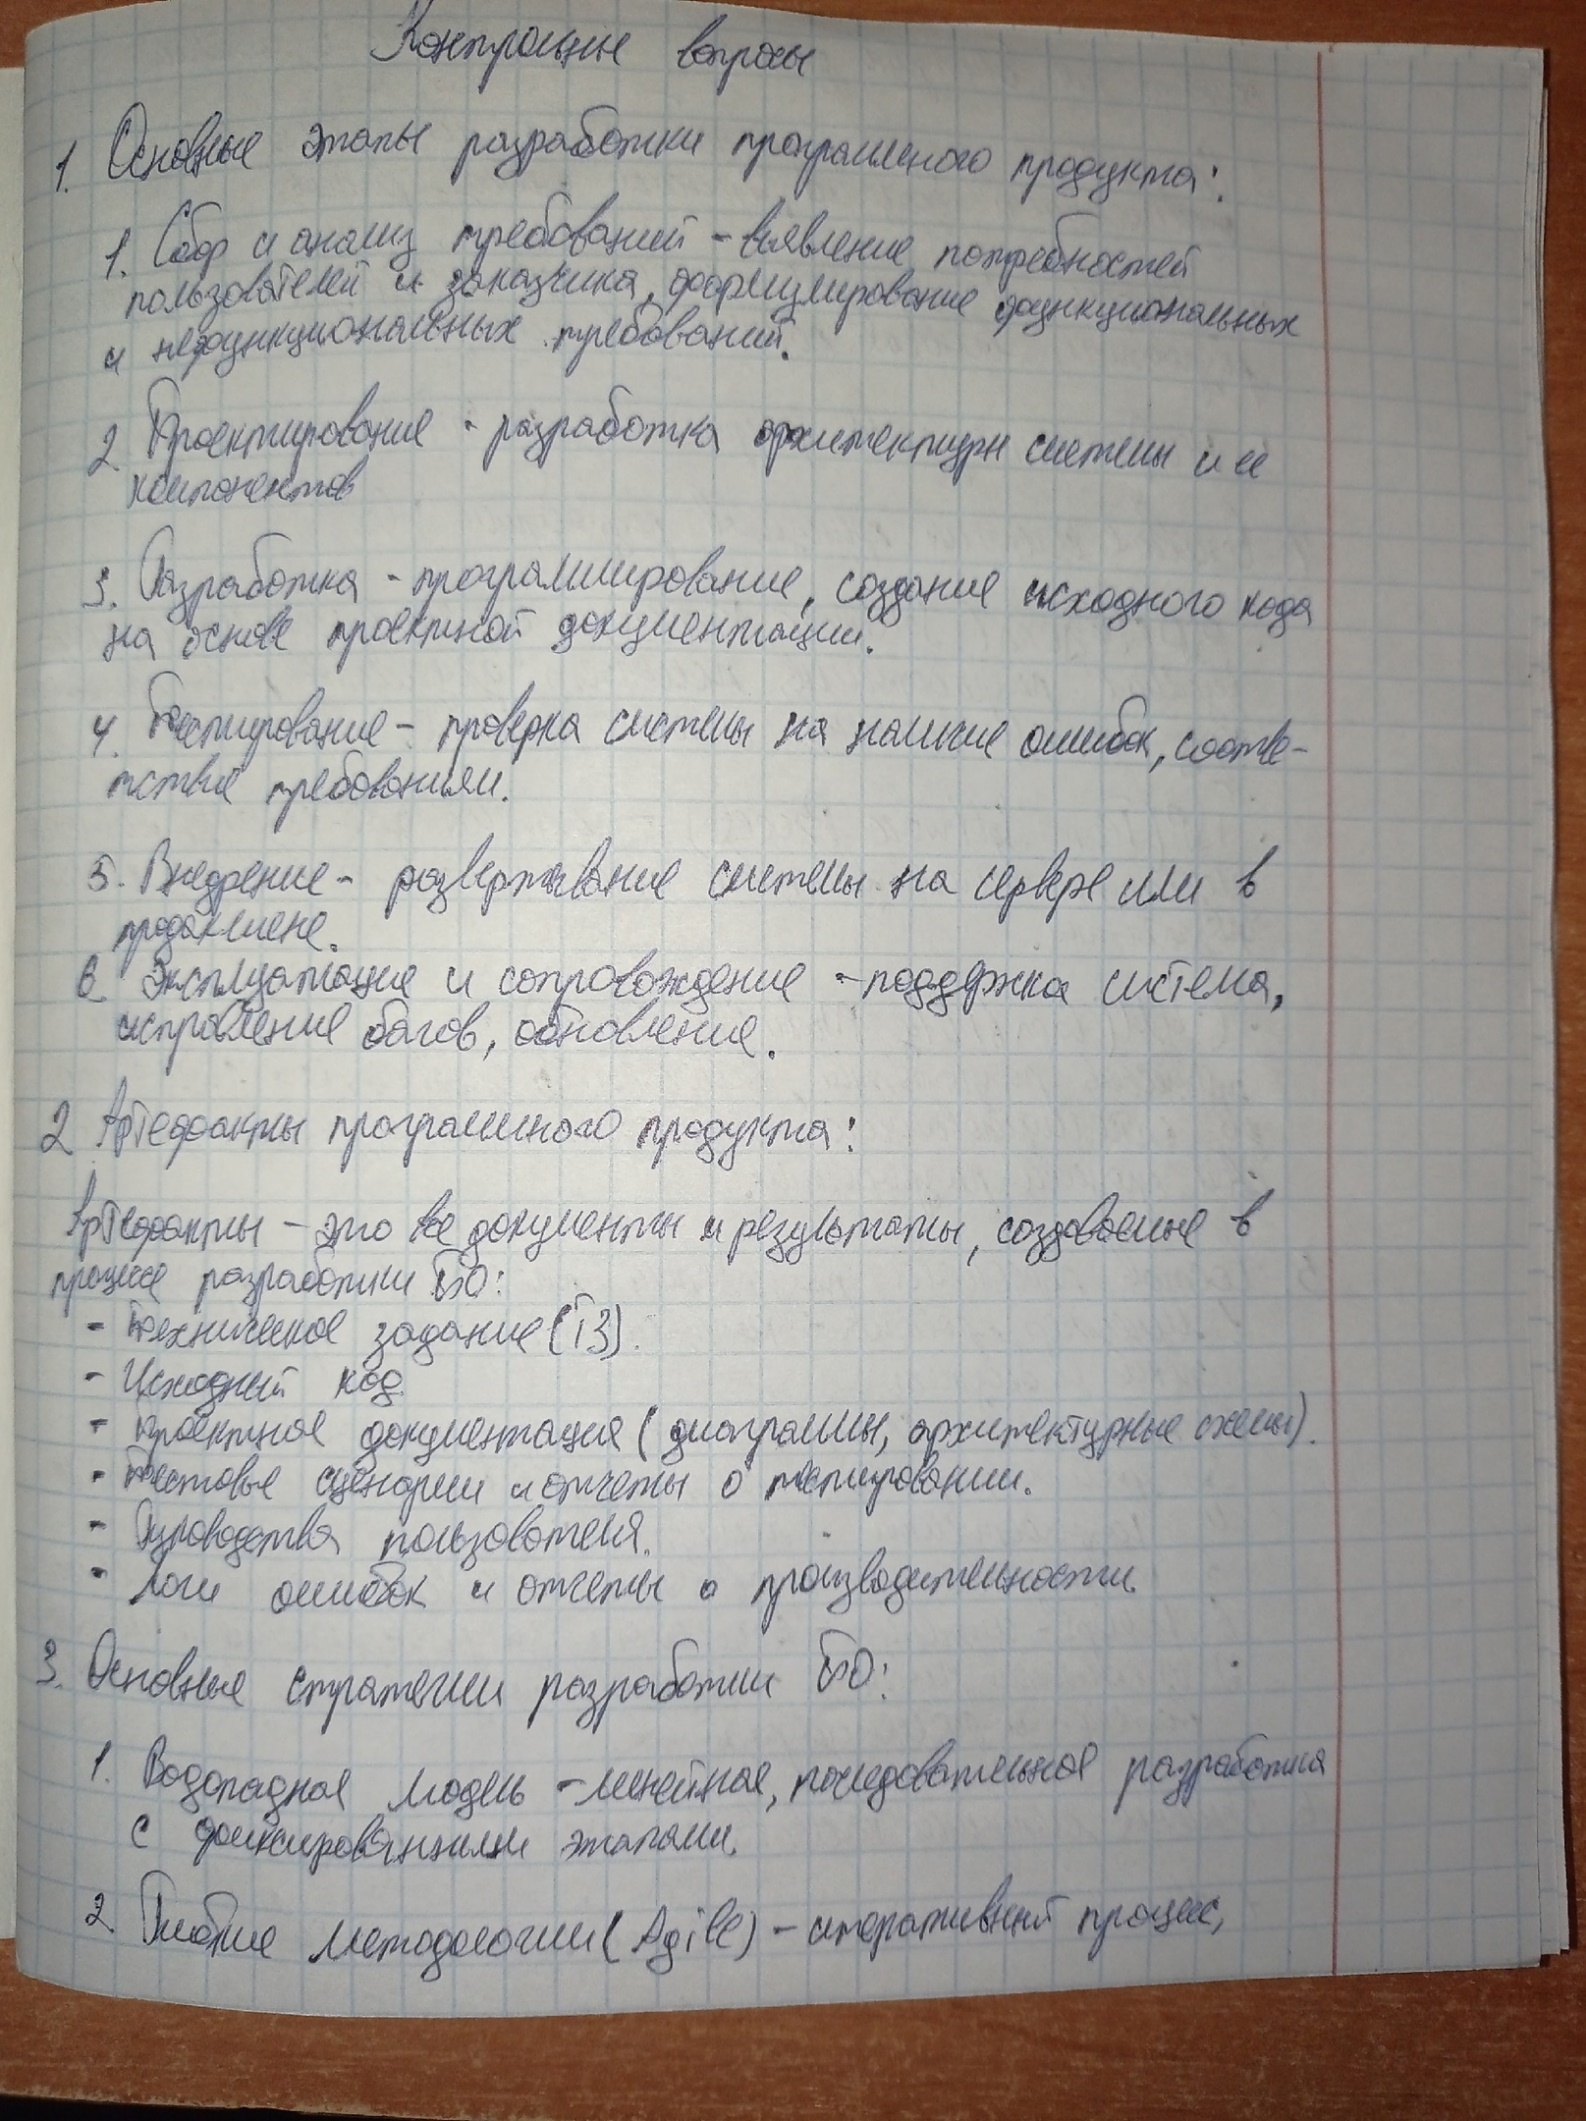 Контрольные вопросы
1. Основные этапы разработки програмного продукта:
1. Сбор и анализ требований - выявление потребностей
пользователей и заказчика, формулирование функциональных
и нефункциональных требований.
2 Проектирование - разработка архитектуры системы и ее
компонентов
3. Разработка - программирование, создание исходного кода
на основе проектной документации.
4. Тестирование - проверка системы на наличие ошибок, соотве-
тствие требованиям.
5. Внедрение - развертывание системы на сервере или в
продакшене.
6 Эксплуатация и сопровождение - поддержка система,
исправление багов, обновление.
2 Артефакты программного продукта:
Артефакты - это все документы и результаты, создаваемые в
процессе разработки ПО:
- Техническое задание (ТЗ).
- Исходный код.
- Проектная документация (диаграммы, архитектурные схемы).
- Тестовые сценарии и отчеты о тестировании.
- Руководства пользователя.
- Логи ошибок и отчеты о производительности.
3. Основные стратегии разработки ПО:
1. Водопадная модель - линейная, последовательная разработка
с фиксированными этапами.
2 Гибкие методологии (Agile) - итеративный процесс,